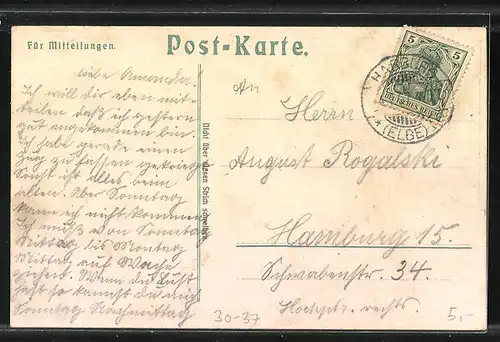 Für Mitteilungen.
Post-Karte.
Liebe Amanda!
Ich will dir eben mit-
teilen daß ich gestern
gut angekommen bin.
Ich habe gerade einen
Zug zu fassen gekriegt
Sonst ist alles beim
alten. Aber Sonntag
kann ich nicht kommen
Ich muß von Sonntag
Mittag bis Montag
Mittag auf Wache
ziehen. Wenn du Lust
hast so kannst du mich
Sonntag Nachmittag
Nicht über diesen Strich schreiben.
An
Herrn
August Rogalski
Hamburg 15.
Schwabenstr. 34.
Hochptr. rechts.
5
5
DEUTSCHES REICH
HARBURG
* (ELBE)
30-37
5,-